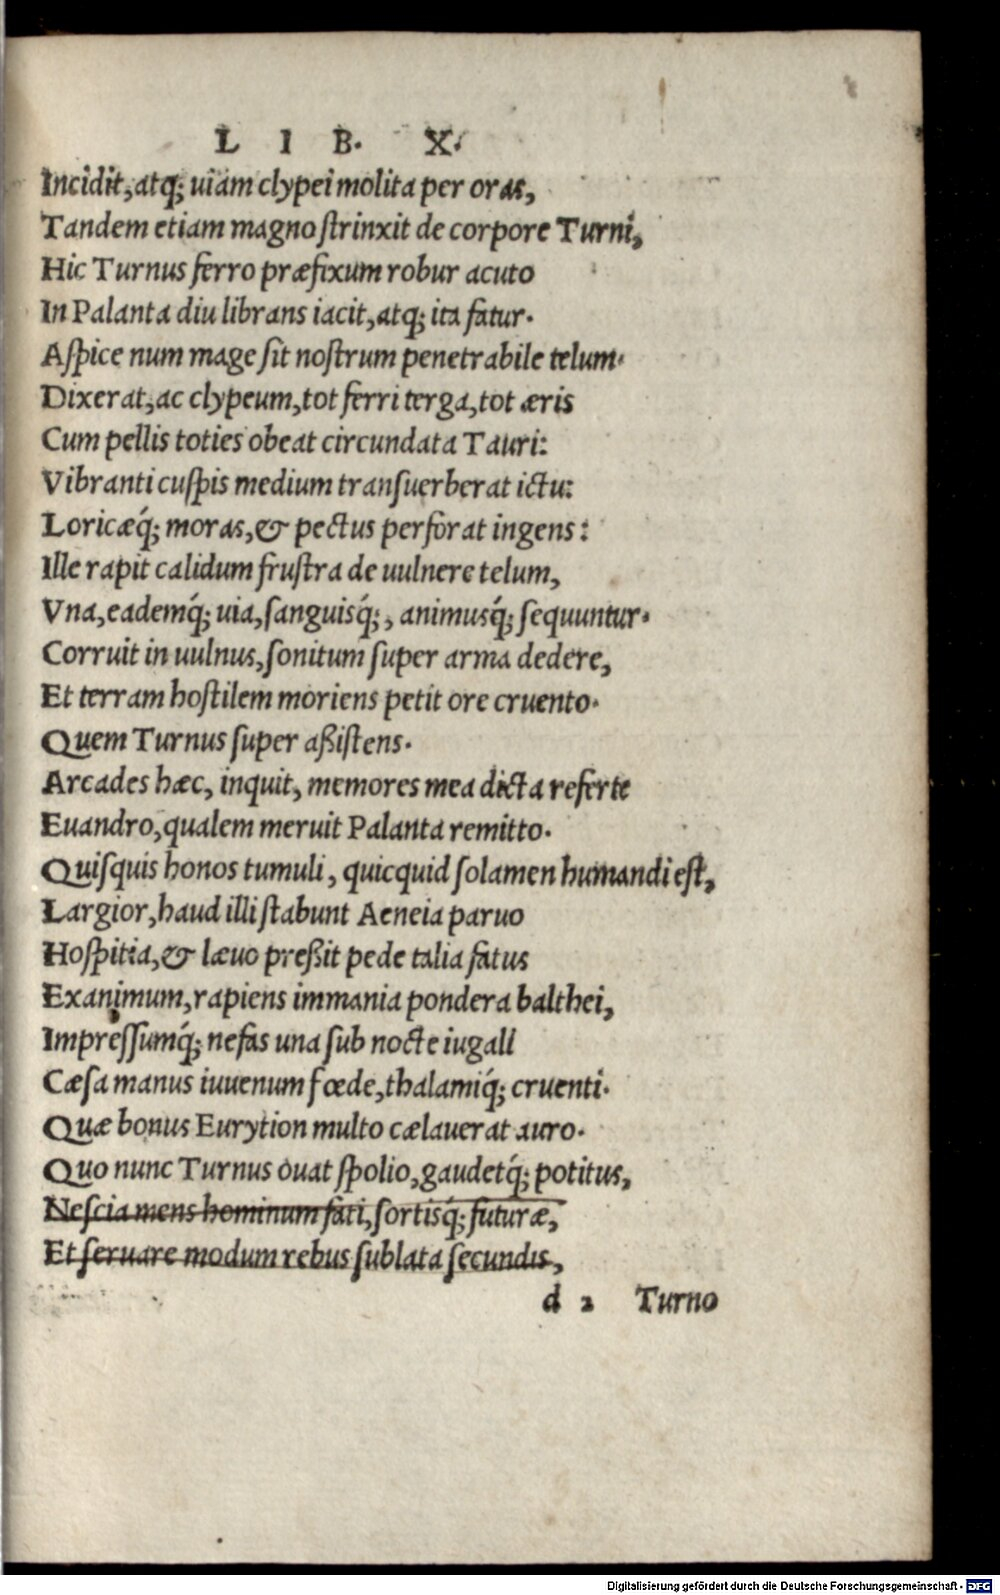 L I B. X.
Incidit, atq; uiam clypei molita per oras,
Tandem etiam magno ſtrinxit de corpore Turni,
Hic Turnus ferro præfixum robur acuto
In Palanta diu librans iacit, atq; ita fatur.
Aſpice num mage ſit noſtrum penetrabile telum.
Dixerat, ac clypeum, tot ferri terga, tot æris
Cum pellis toties obeat circundata Tauri:
Vibranti cuſpis medium tranſuerberat ictu:
Loricæq́; moras, & pectus perforat ingens:
Ille rapit calidum fruſtra de uulnere telum,
Vna, eademq́; uia, ſanguisq́;, animusq́; ſequuntur.
Corruit in uulnus, ſonitum ſuper arma dedere,
Et terram hoſtilem moriens petit ore cruento.
Quem Turnus ſuper aßiſtens.
Arcades hæc, inquit, memores mea dicta referte
Euandro, qualem meruit Palanta remitto.
Quiſquis honos tumuli, quicquid ſolamen humandi eſt,
Largior, haud illi ſtabunt Aeneia paruo
Hoſpitia, & læuo preßit pede talia fatus
Exanimum, rapiens immania pondera balthei,
Impreſſumq́; nefas una ſub nocte iugali
Cæſa manus iuuenum fœde, thalamiq́; cruenti.
Quæ bonus Eurytion multo cælauerat auro.
Quo nunc Turnus ouat ſpolio, gaudetq́; potitus,
Neſcia mens hominum fati, ſortisq́; futuræ,
Et ſeruare modum rebus ſublata ſecundis,
d 2 Turno
Digitalisierung gefördert durch die Deutsche Forschungsgemeinschaft - DFG